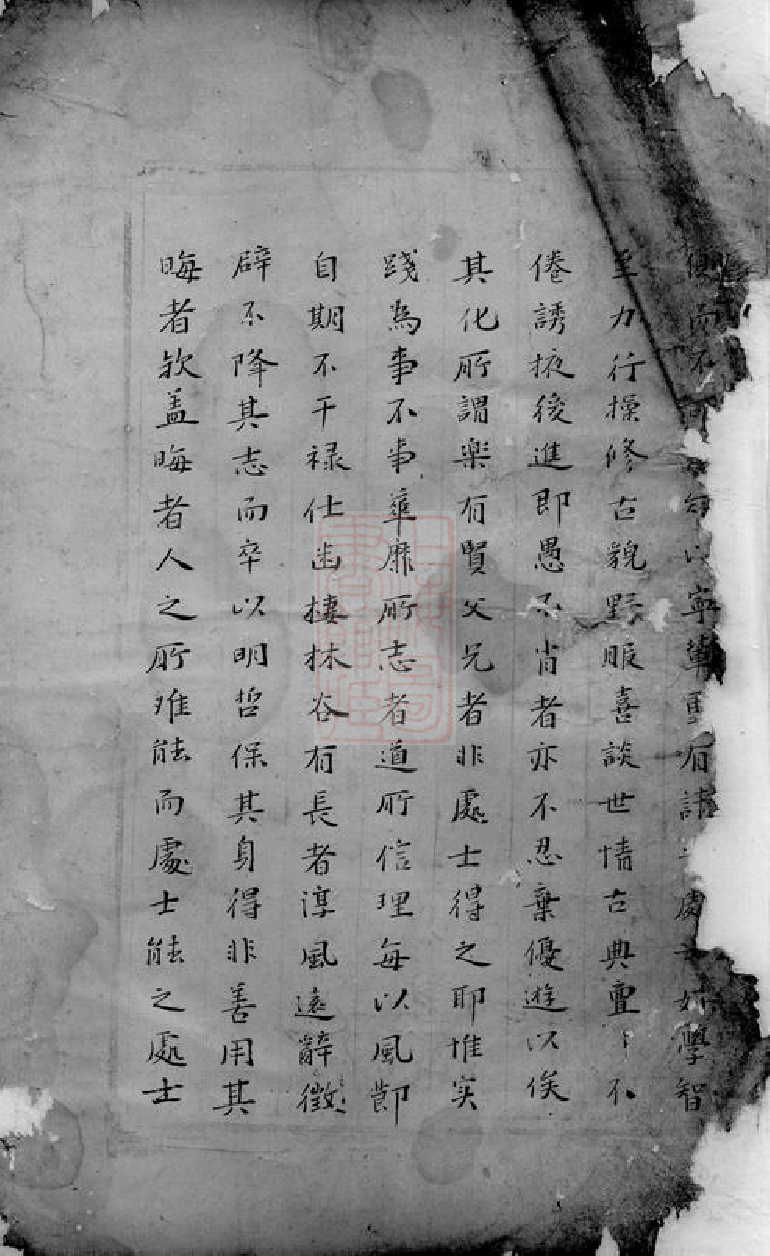 而不以寧有處好學智
至力行操修古貌野服喜談世情古典亹〻不
倦誘掖後進即愚不肖者亦不忍棄優遊以俟
其化所謂楽有賢父兄者非處士得之耶惟实
踐為事不事華靡所志者道所信理每以風節
自期不干禄仕幽棲林谷有長者淳風遠辭徵
辟不降其志而卒以明哲保其身得非善用其
晦者欤盖晦者人之所难能而處士能之處士